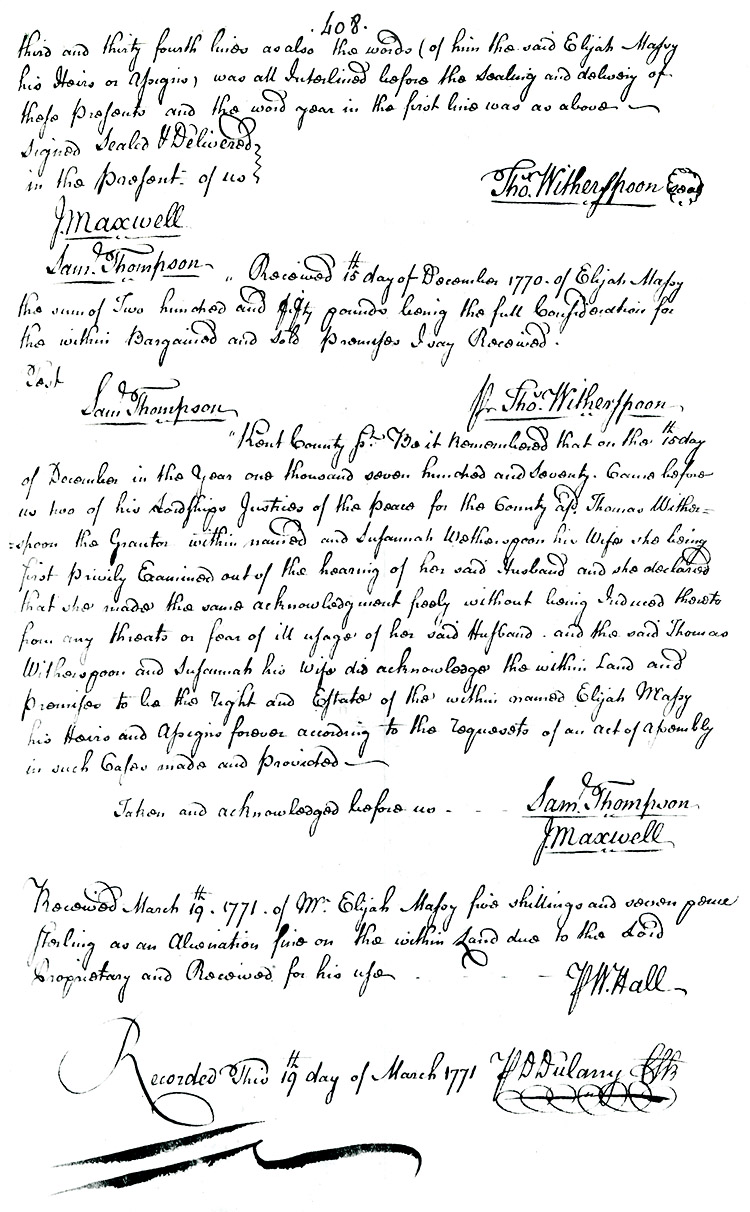 . 408 .
third and thirty fourth lines as also the words (of him the said Elijah Massy
his Heirs or Assigns) was all Interlined before the Sealing and delivery of
these Presents and the word year in the first line was as above
Signed Sealed & Delivered
in the Present of us
Thos. Witherspoon Seal
J. Maxwell
Samd. Thompson
" Received 15th day of December 1770. of Elijah Massy
the sum of Two hundred and fifty pounds being the full Consideration for
the within Bargained and sold Premises I say Received.
Test
Samd. Thompson
Pr Thos. Witherspoon
" Kent County Sst. Be it Remembered that on the 15th day
of December in the Year one thousand seven hundred and seventy. Came before
us two of his Lordships Justices of the Peace for the County afd. Thomas Wither=
=spoon the Grantor within named and Susannah Wetherspoon his Wife she being
first Privily Examined out of the hearing of her said Husband and she declared
that she made the same acknowledgment freely without being Induced thereto
from any threats or fear of ill usage of her said Husband. and the said Thomas
Witherspoon and Susannah his Wife did acknowledge the within Land and
Premises to be the Right and Estate of the within named Elijah Massy
his Heirs and Assigns forever according to the requests of an act of Assembly
in such Cases made and Provided
Taken and acknowledged before us - - -
Samd. Thompson
J. Maxwell
Received March 19th. 1771. of Mr. Elijah Massy five shillings and seven pence
sterling as an Alienation fine on the within Land due to the Lord
Proprietary and Received for his use - - - -
P W. Hall
Recorded This 19th day of March 1771 P D Dulany Clk